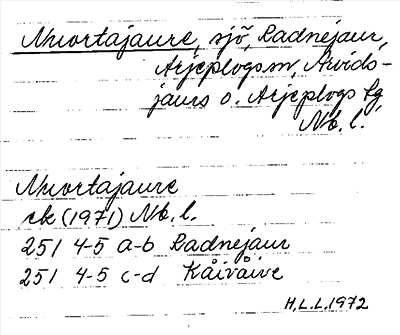 Nuortajaure, sjö, Radnejaur,
Arjeplogs sn, Arvids-
jaurs o. Arjeplogs tg,
Nb. l.
Nuortajaure
ek (1971) Nb. l.
251 4-5 a-b Radnejaur
251 4-5 c-d Kåivåive
H.L.L. 1972